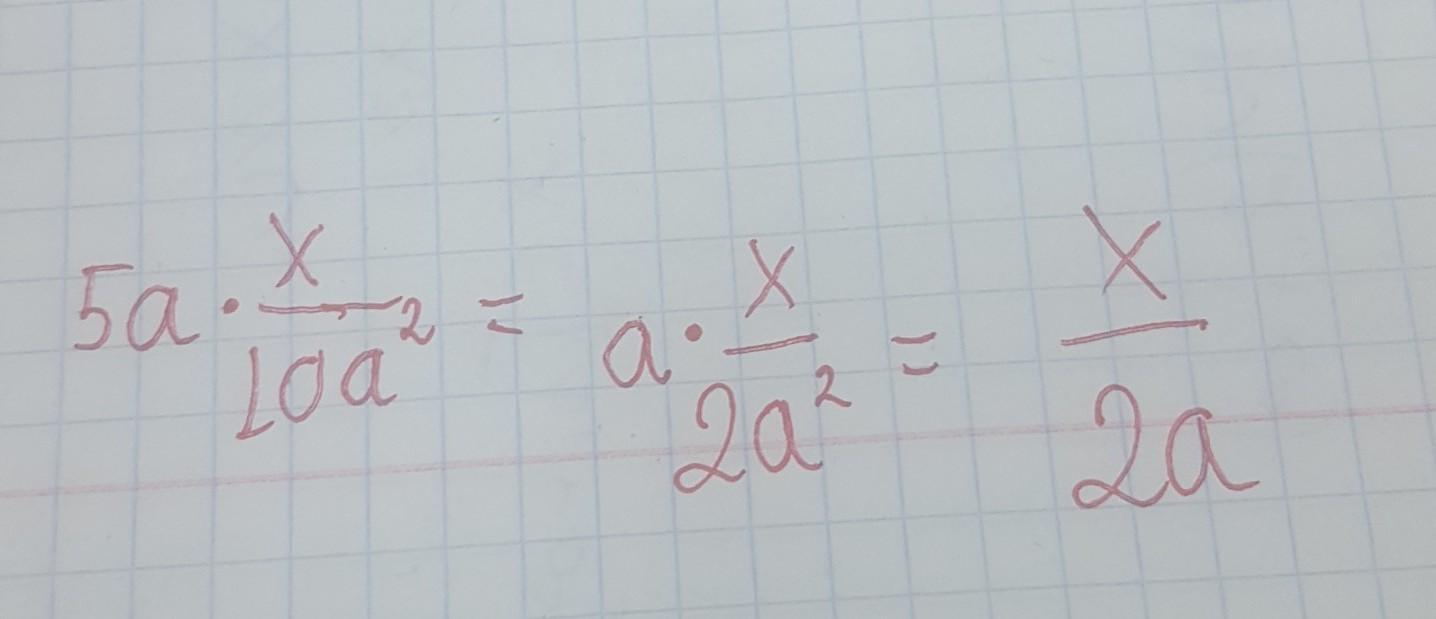 5a · x/10a² = a · x/2a² = x/2a